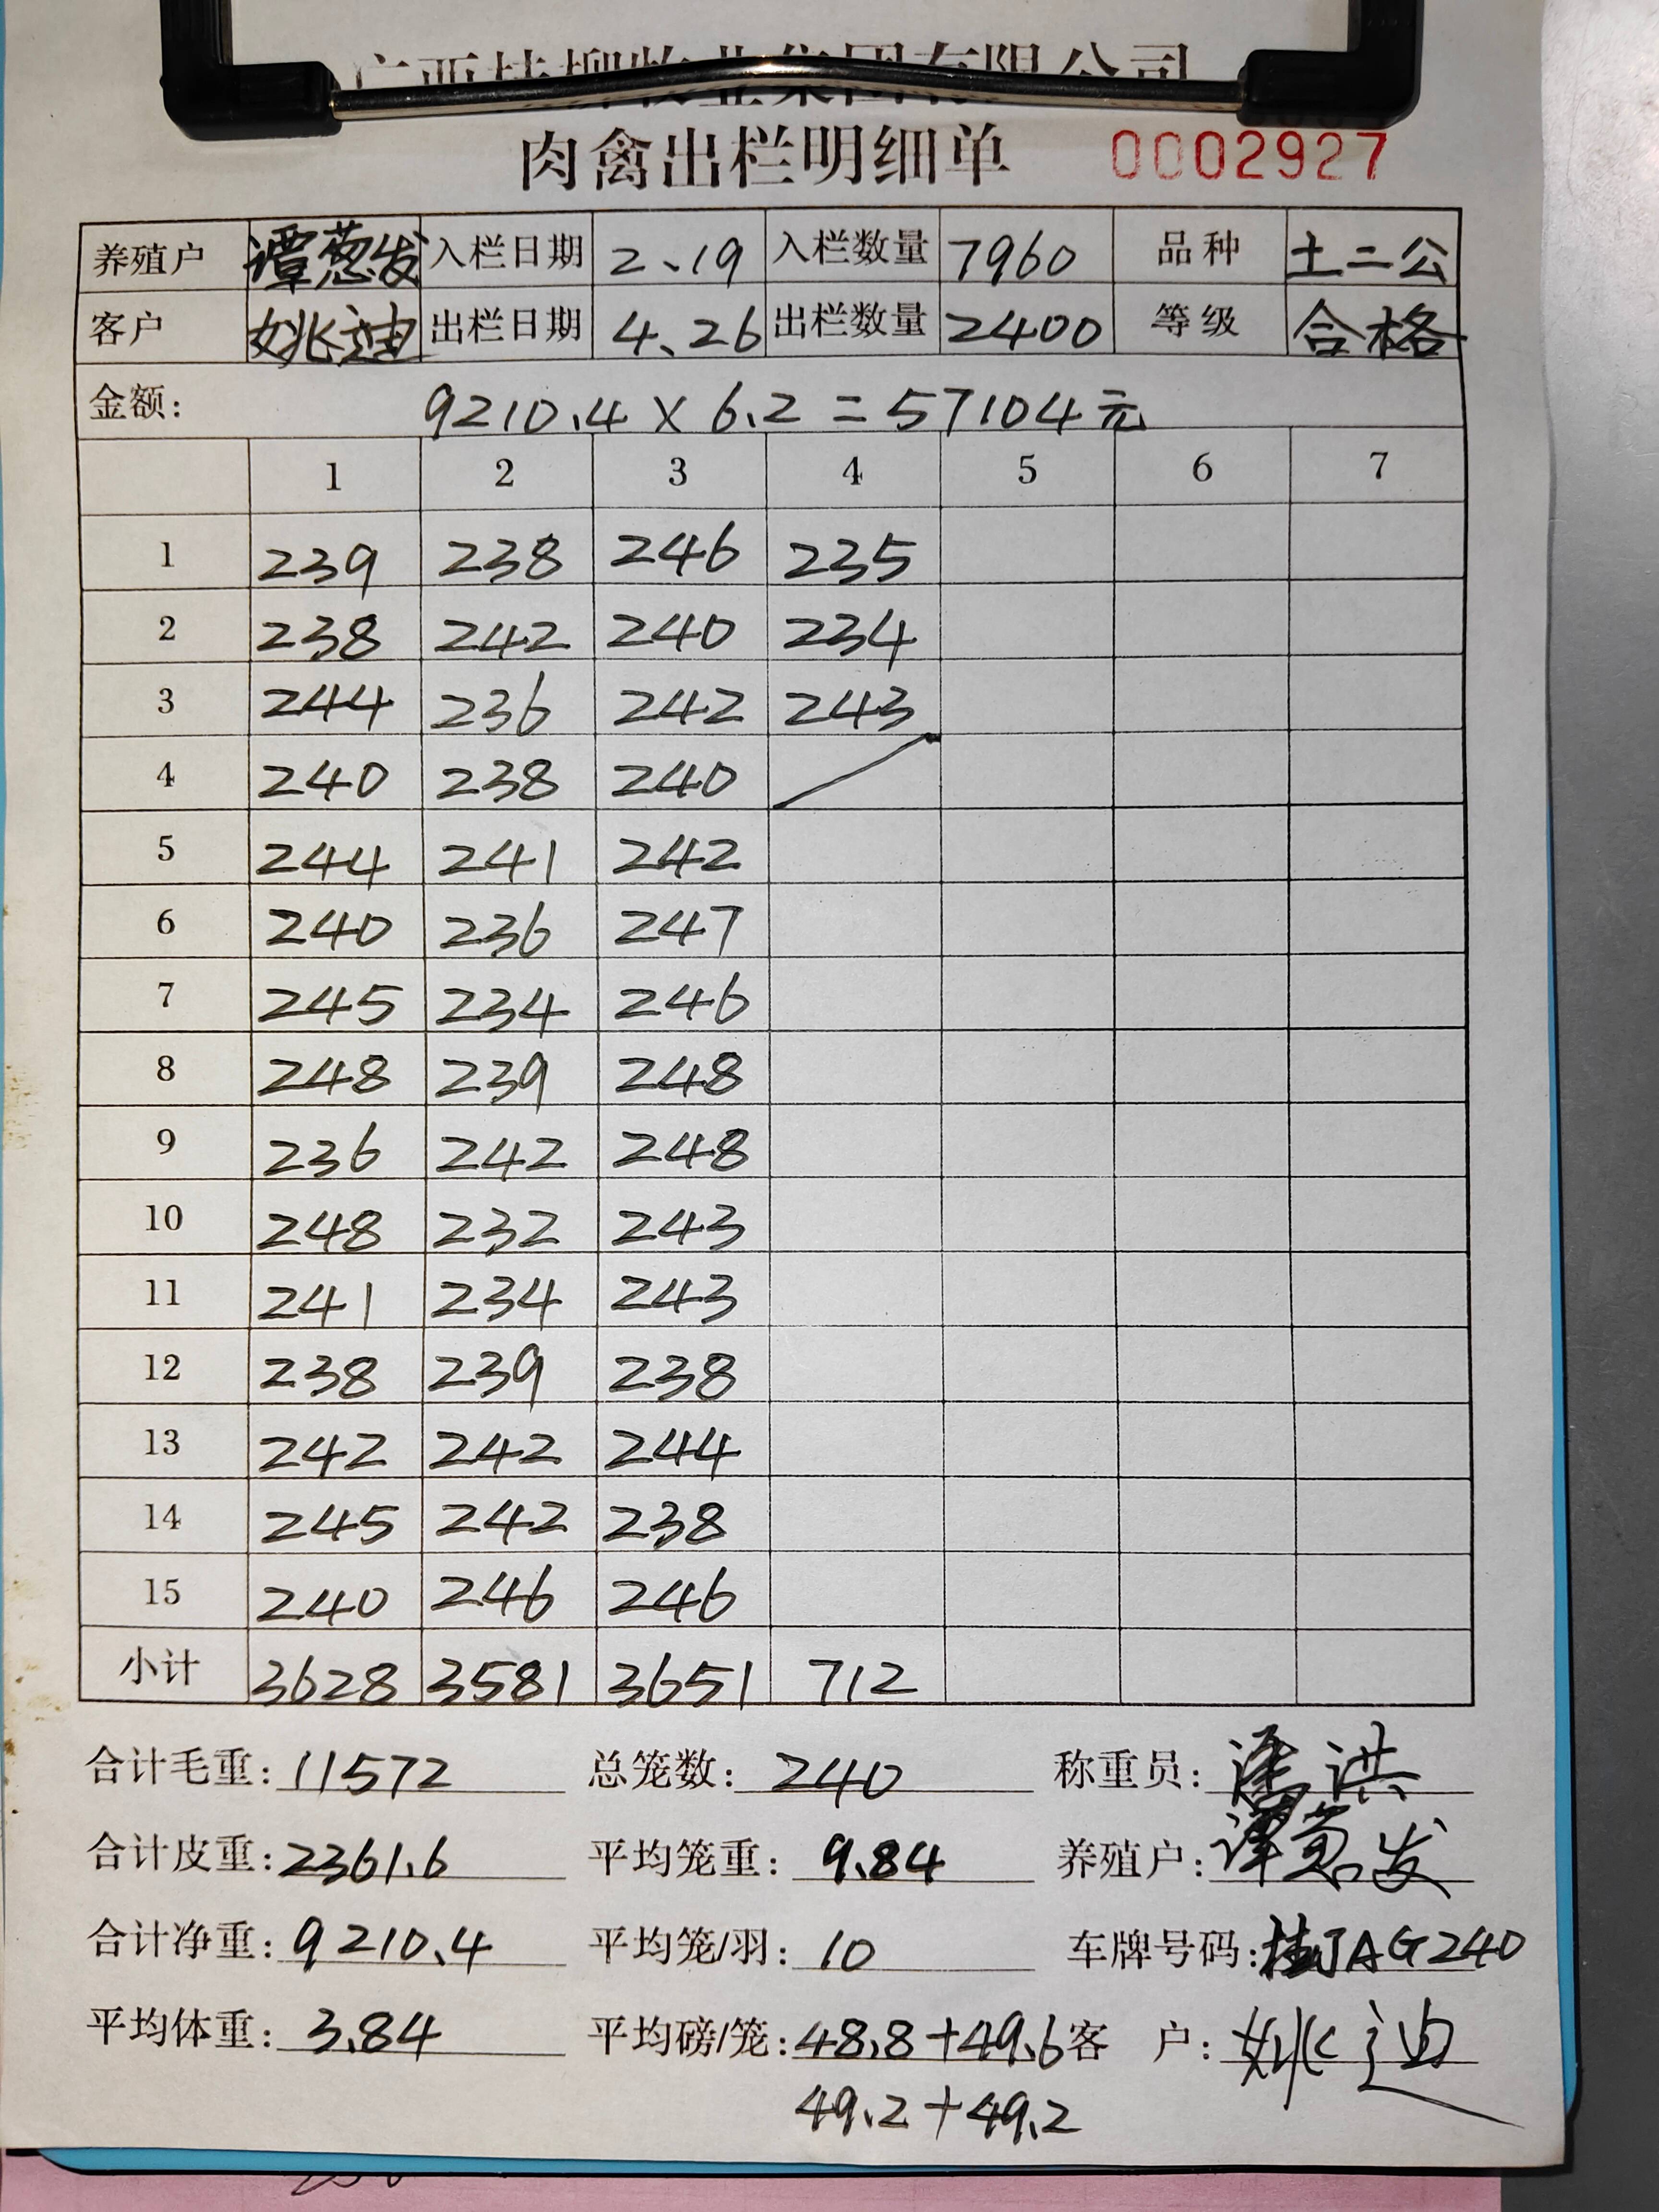 肉禽出栏明细单 0002927
养殖户 谭葱发 入栏日期 2、19 入栏数量 7960 品种 土二公
客户 姚迪 出栏日期 4、26 出栏数量 2400 等级 合格
金额: 9210.4 × 6.2 = 57104元
1 2 3 4 5 6 7
1 239 238 246 235
2 238 242 240 234
3 244 236 242 243
4 240 238 240
5 244 241 242
6 240 236 247
7 245 234 246
8 248 239 248
9 236 242 248
10 248 232 243
11 241 234 243
12 238 239 238
13 242 242 244
14 245 242 238
15 240 246 246
小计 3628 3581 3651 712
合计毛重: 11572 总笼数: 240 称重员: 洪
合计皮重: 2361.6 平均笼重: 9.84 养殖户: 谭葱发
合计净重: 9210.4 平均笼/羽: 10 车牌号码: 桂JAG240
平均体重: 3.84 平均磅/笼: 48.8+49.6 客 户: 姚迪
49.2+49.2